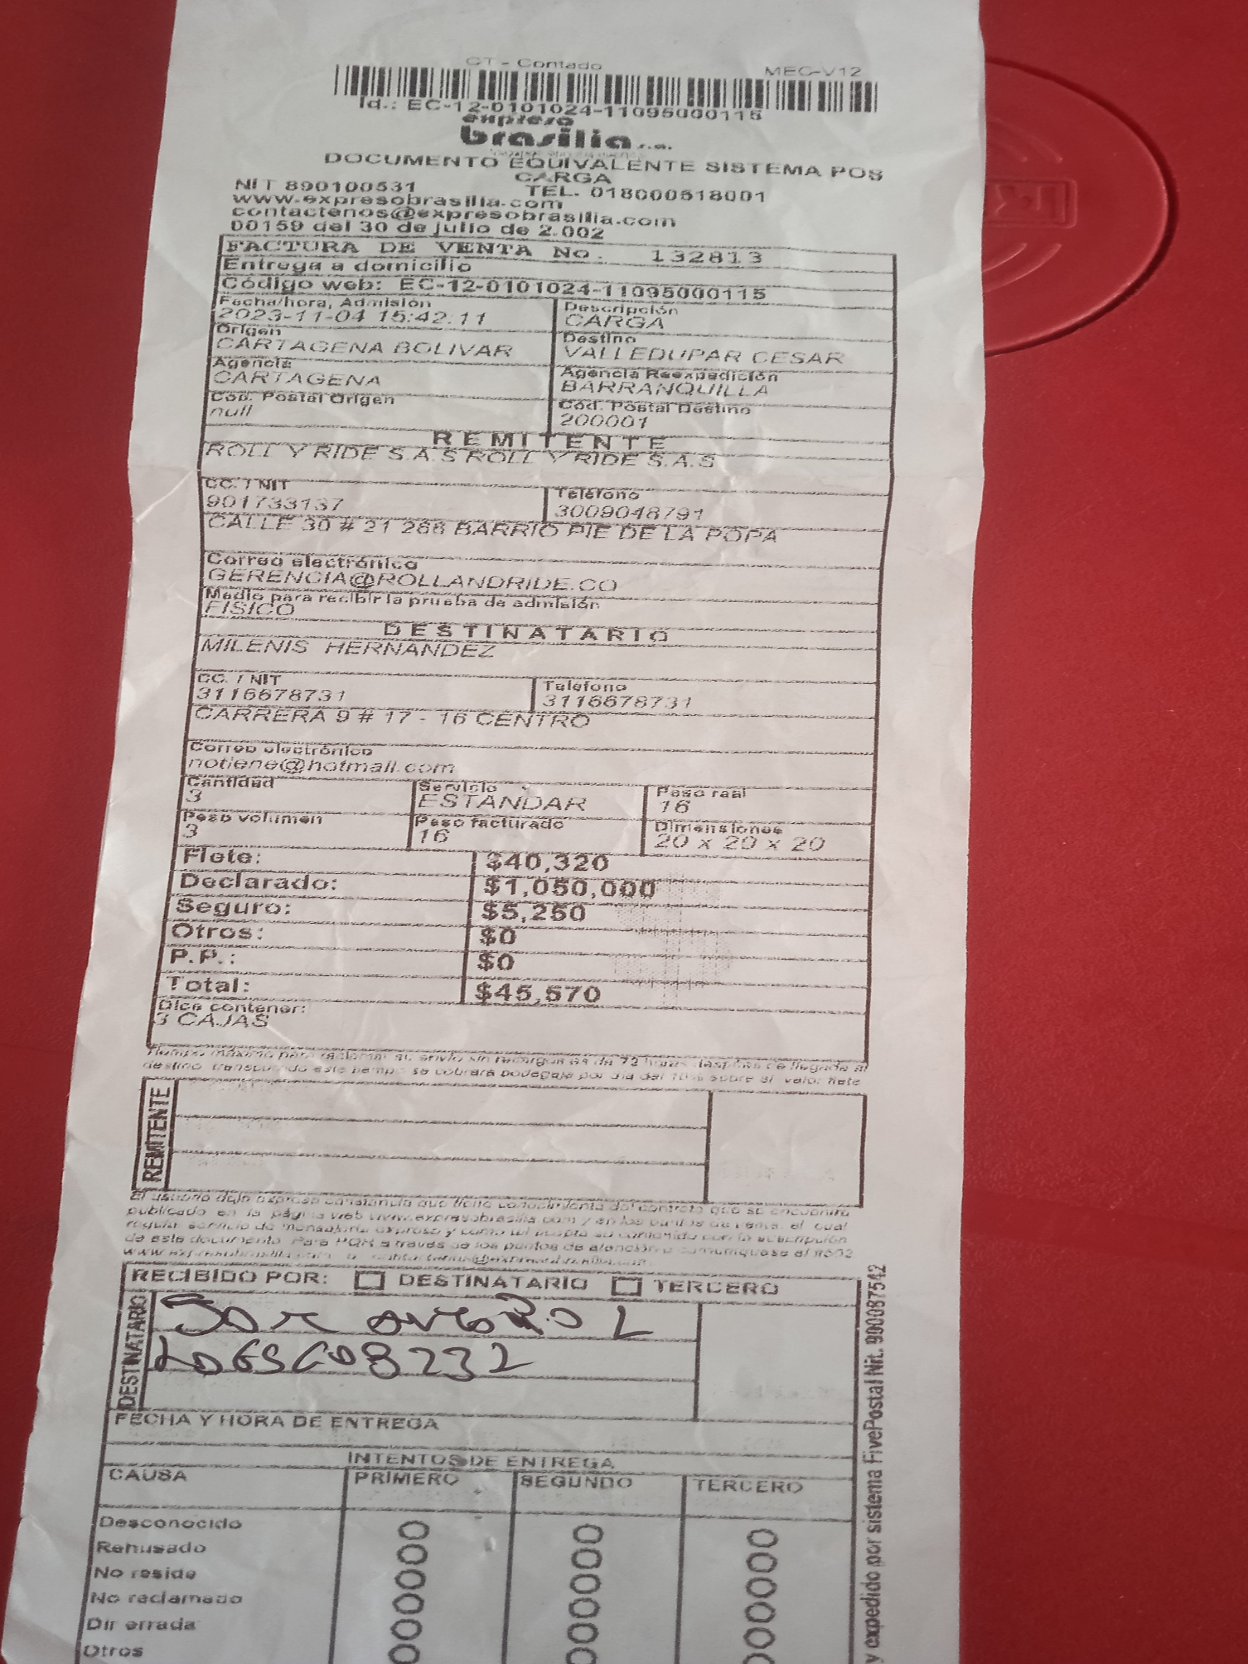 CT - Contado MEC-V12
Id.: EC-12-0101024-11095000115
expreso
brasilia s.a.
DOCUMENTO EQUIVALENTE SISTEMA POS
CARGA
NIT 890100531 TEL. 018000518001
www.expresobrasilia.com
contactenos@expresobrasilia.com
00159 del 30 de julio de 2.002
FACTURA DE VENTA No. 132813
Entrega a domicilio
Código web: EC-12-0101024-11095000115
Fecha/hora, Admisión Descripción
2023-11-04 15:42:11 CARGA
Origen Destino
CARTAGENA BOLIVAR VALLEDUPAR CESAR
Agencia Agencia Reexpedición
CARTAGENA BARRANQUILLA
Cod. Postal Origen Cód. Postal Destino
null 200001
REMITENTE
ROLL Y RIDE S.A.S ROLL Y RIDE S.A.S
CC. / NIT Teléfono
901733137 3009048791
CALLE 30 # 21 266 BARRIO PIE DE LA POPA
Correo electrónico
GERENCIA@ROLLANDRIDE.CO
Medio para recibir la prueba de admisión
FISICO
DESTINATARIO
MILENIS HERNANDEZ
CC. / NIT Teléfono
3116678731 3116678731
CARRERA 9 # 17 - 16 CENTRO
Correo electrónico
notiene@hotmail.com
Cantidad Servicio Peso real
3 ESTANDAR 16
Peso volumen Peso facturado Dimensiones
3 16 20 x 20 x 20
Flete: $40,320
Declarado: $1,050,000
Seguro: $5,250
Otros: $0
P.P.: $0
Total: $45,570
Dice contener:
3 CAJAS
Tiempo máximo para reclamar su envío sin recargos es de 72 horas después de llegada al
destino, transcurrido este tiempo se cobrará bodegaje por día del 10% sobre el valor flete
REMITENTE
El usuario deja expresa constancia que tiene conocimiento del contrato que se encuentra
publicado en la página web www.expresobrasilia.com y en los puntos de venta, el cual
regula servicio de mensajería expresa y como tal acepta su contenido con la suscripción
de este documento. Para PQR a través de los puntos de atención o comuníquese al
RECIBIDO POR: DESTINATARIO TERCERO
DESTINATARIO
FECHA Y HORA DE ENTREGA
INTENTOS DE ENTREGA
CAUSA PRIMERO SEGUNDO TERCERO
Desconocido
Rehusado
No reside
No reclamado
Dir errada
Otros
y expedido por sistema FivePostal Nit. 900087542